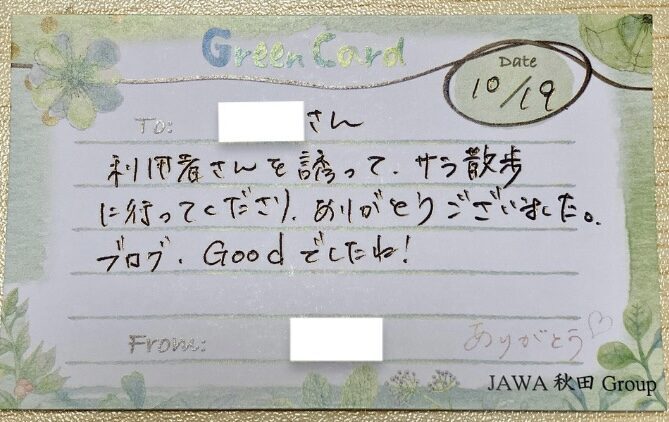 Green Card
Date
10/19
To: さん
利用者さんを誘って、サラ散歩
に行ってくださり、ありがとうございました。
ブログ、Goodでしたね!
From:
ありがとう♡
JAWA 秋田 Group